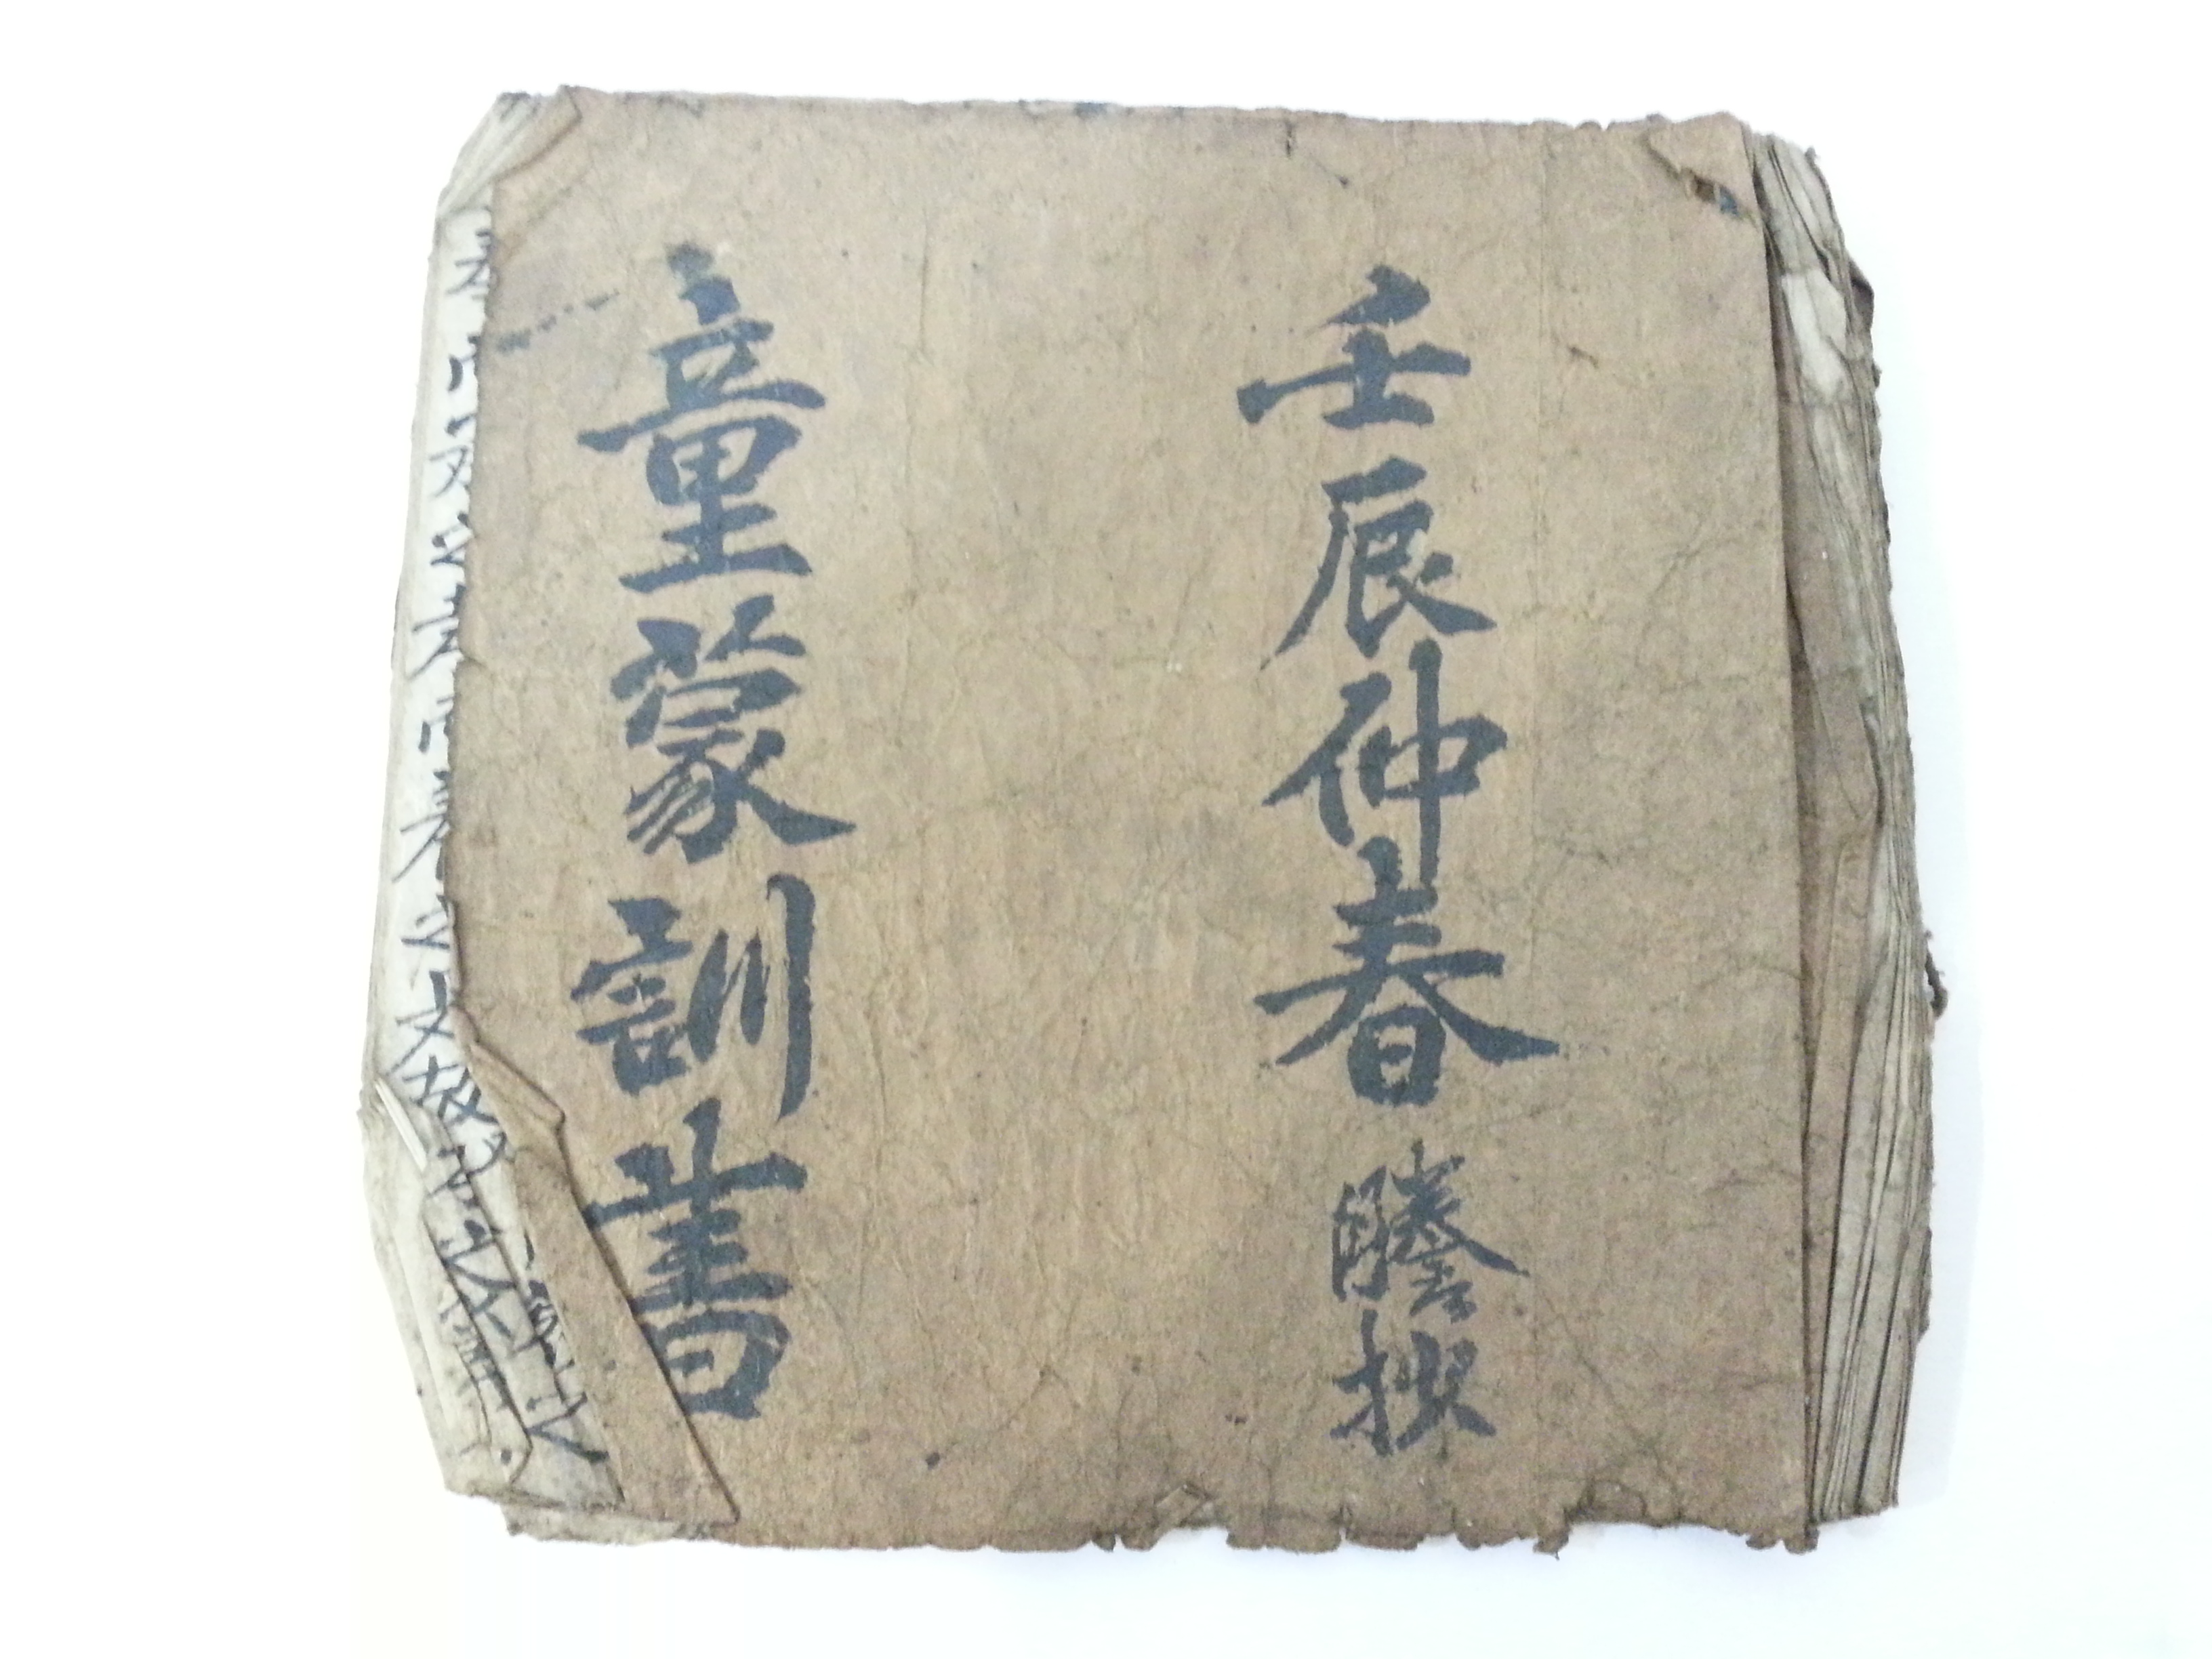 壬辰仲春謄抄
童蒙訓書